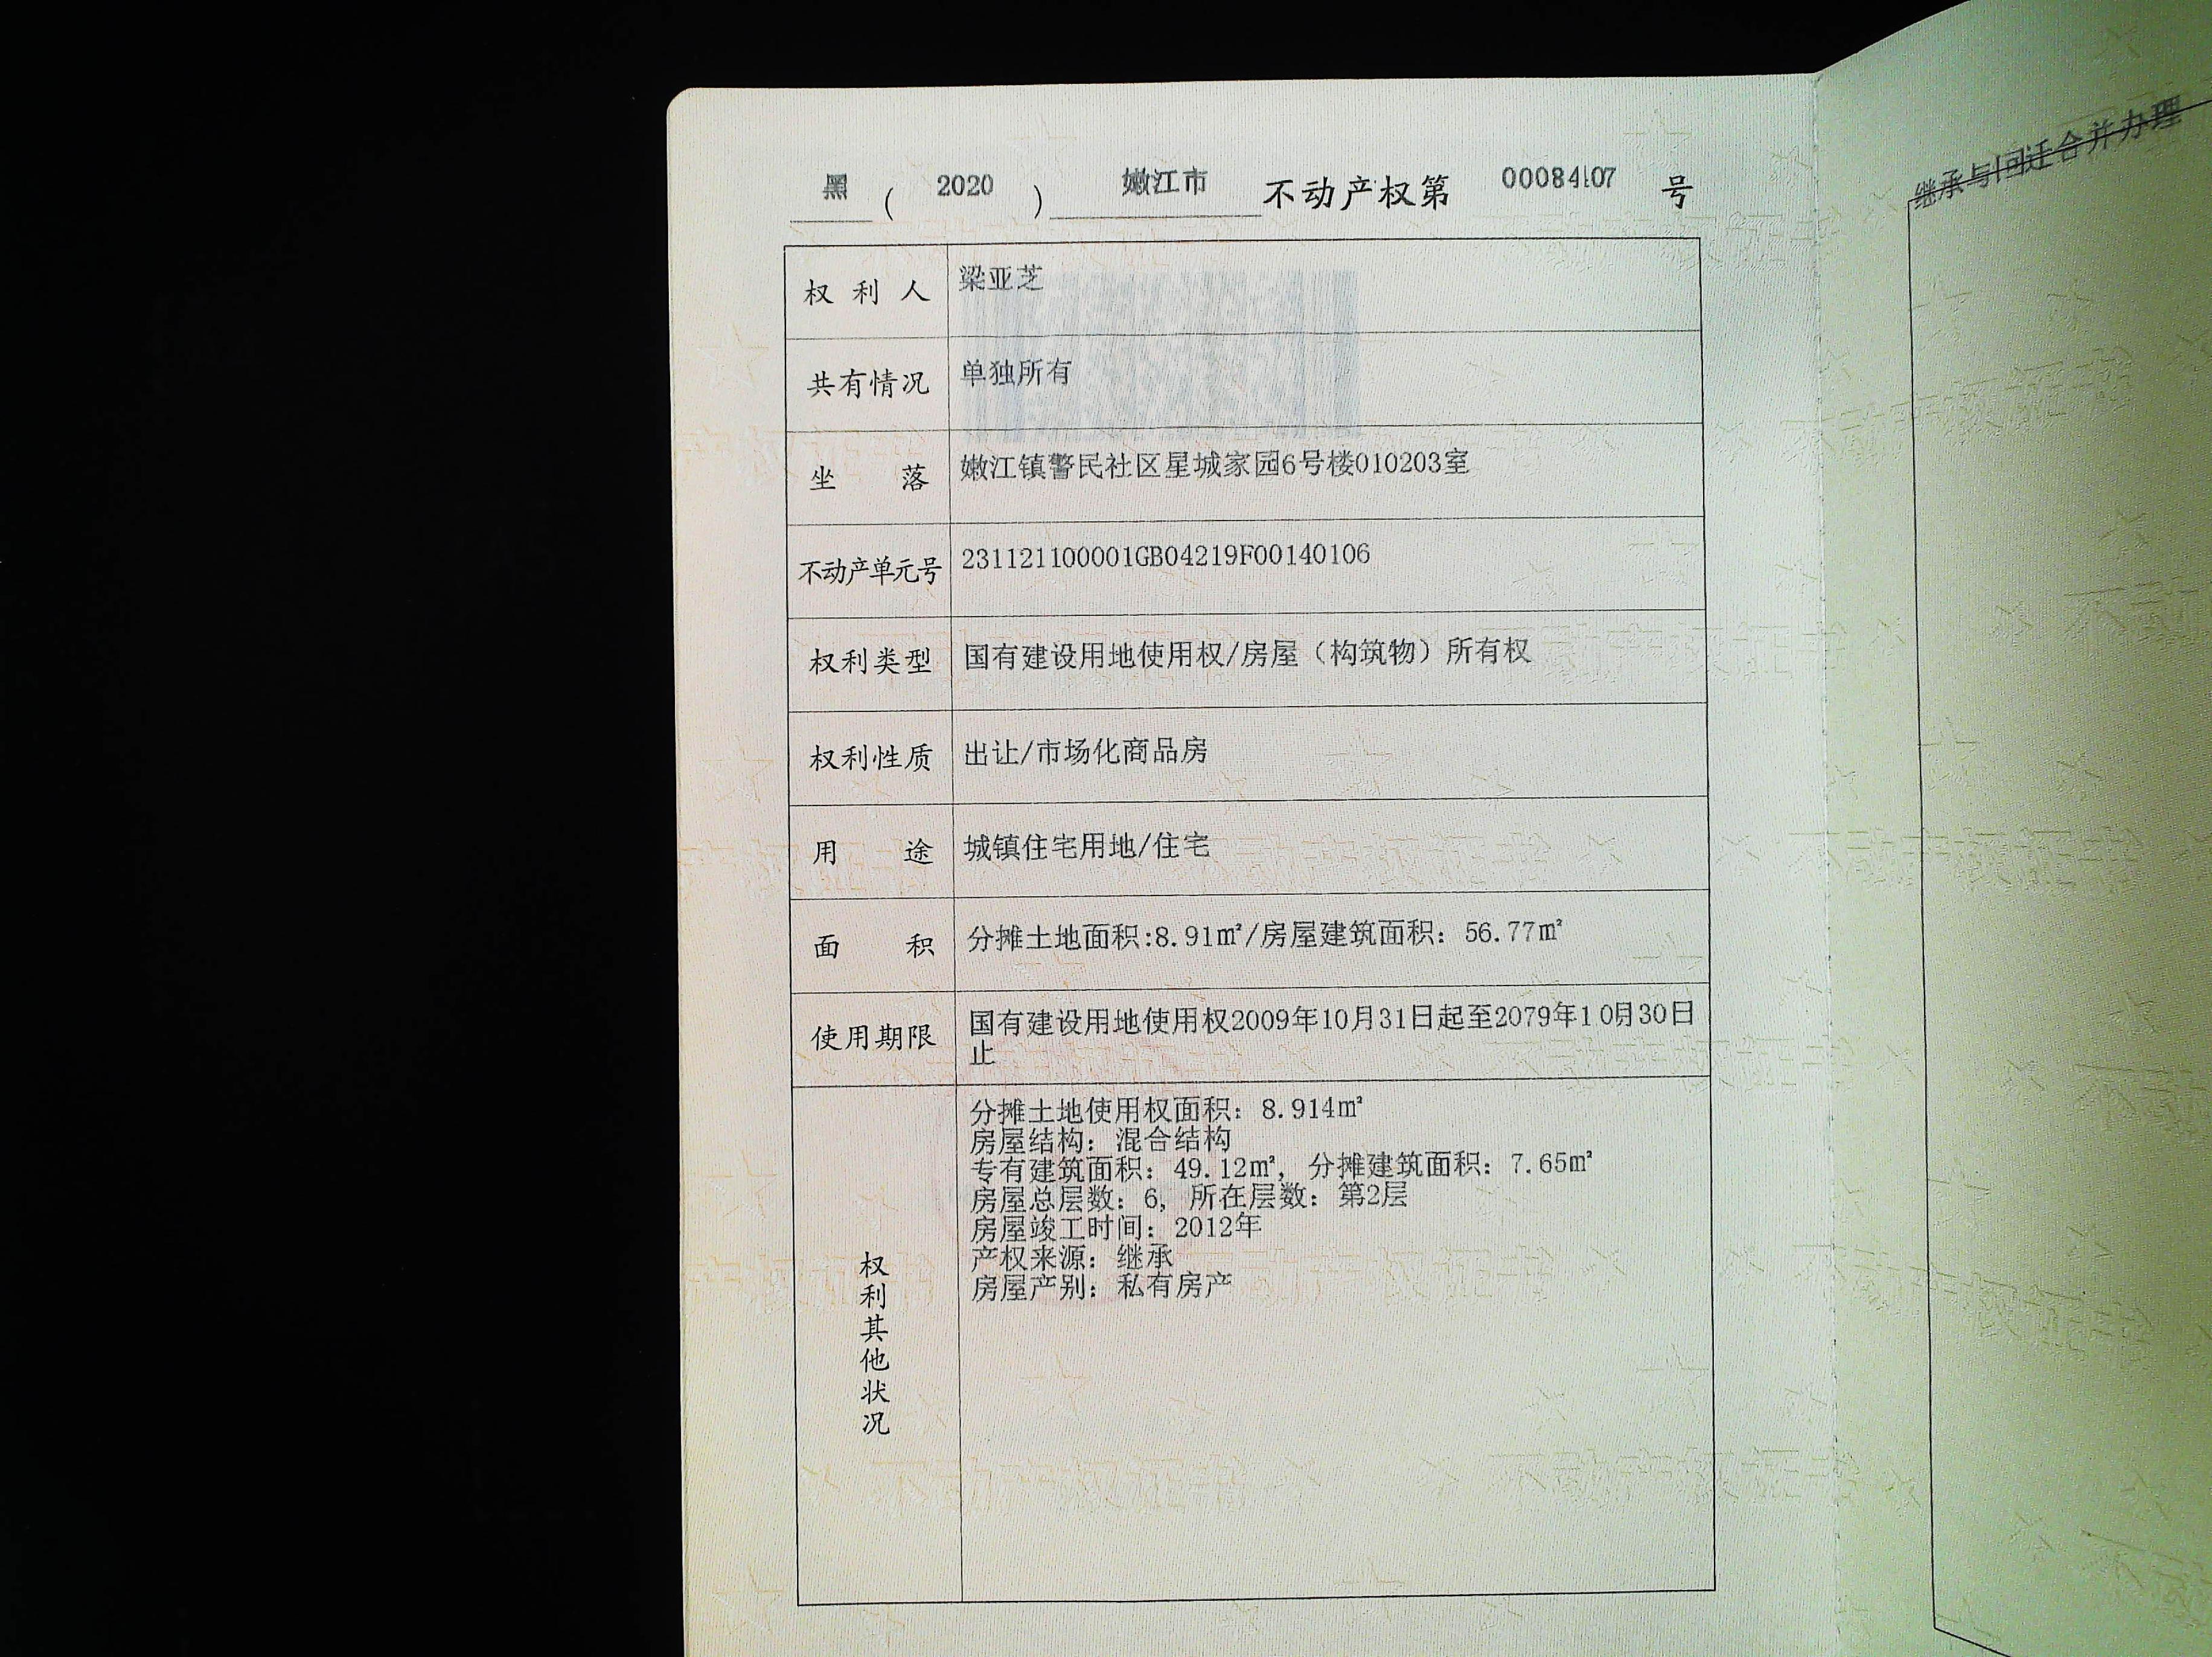 黑 ( 2020 ) 嫩江市 不动产权第 00084107 号
权利人 梁亚芝
共有情况 单独所有
坐落 嫩江镇警民社区星城家园6号楼010203室
不动产单元号 231121100001GB04219F00140106
权利类型 国有建设用地使用权/房屋（构筑物）所有权
权利性质 出让/市场化商品房
用途 城镇住宅用地/住宅
面积 分摊土地面积:8.91㎡/房屋建筑面积：56.77㎡
使用期限 国有建设用地使用权2009年10月31日起至2079年10月30日
止
权利其他状况
分摊土地使用权面积：8.914㎡
房屋结构：混合结构
专有建筑面积：49.12㎡，分摊建筑面积：7.65㎡
房屋总层数：6，所在层数：第2层
房屋竣工时间：2012年
产权来源：继承
房屋产别：私有房产
继承与回迁合并办理